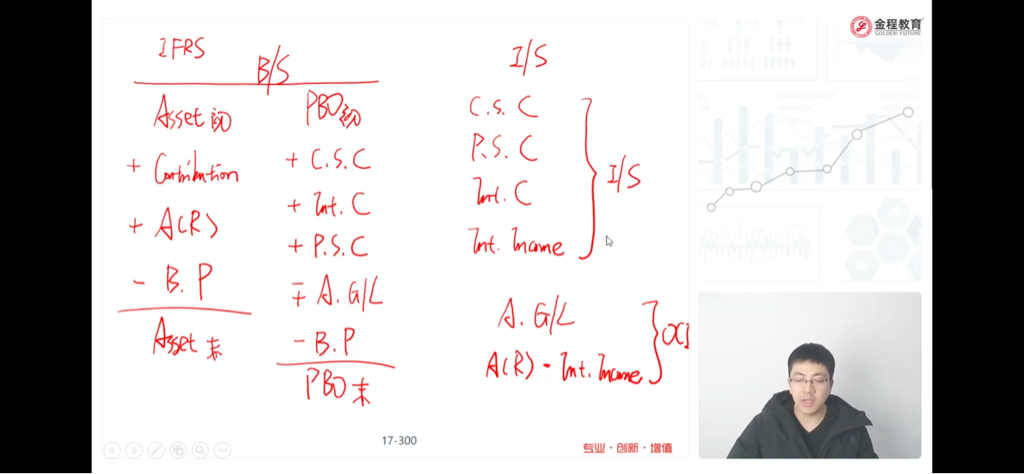 IFRS
B/S
I/S
金程教育
GOLDEN FUTURE
Asset 初
PBO 初
+ Contribution
+ C.S.C
+ A(R)
+ Int. C
+ P.S.C
- B.P
∓ A. G/L
Asset 末
- B.P
PBO 末
C.S.C
P.S.C
Int. C
Int. Income
I/S
A. G/L
A(R) - Int. Income
OCI
17-300
专业·创新·增值